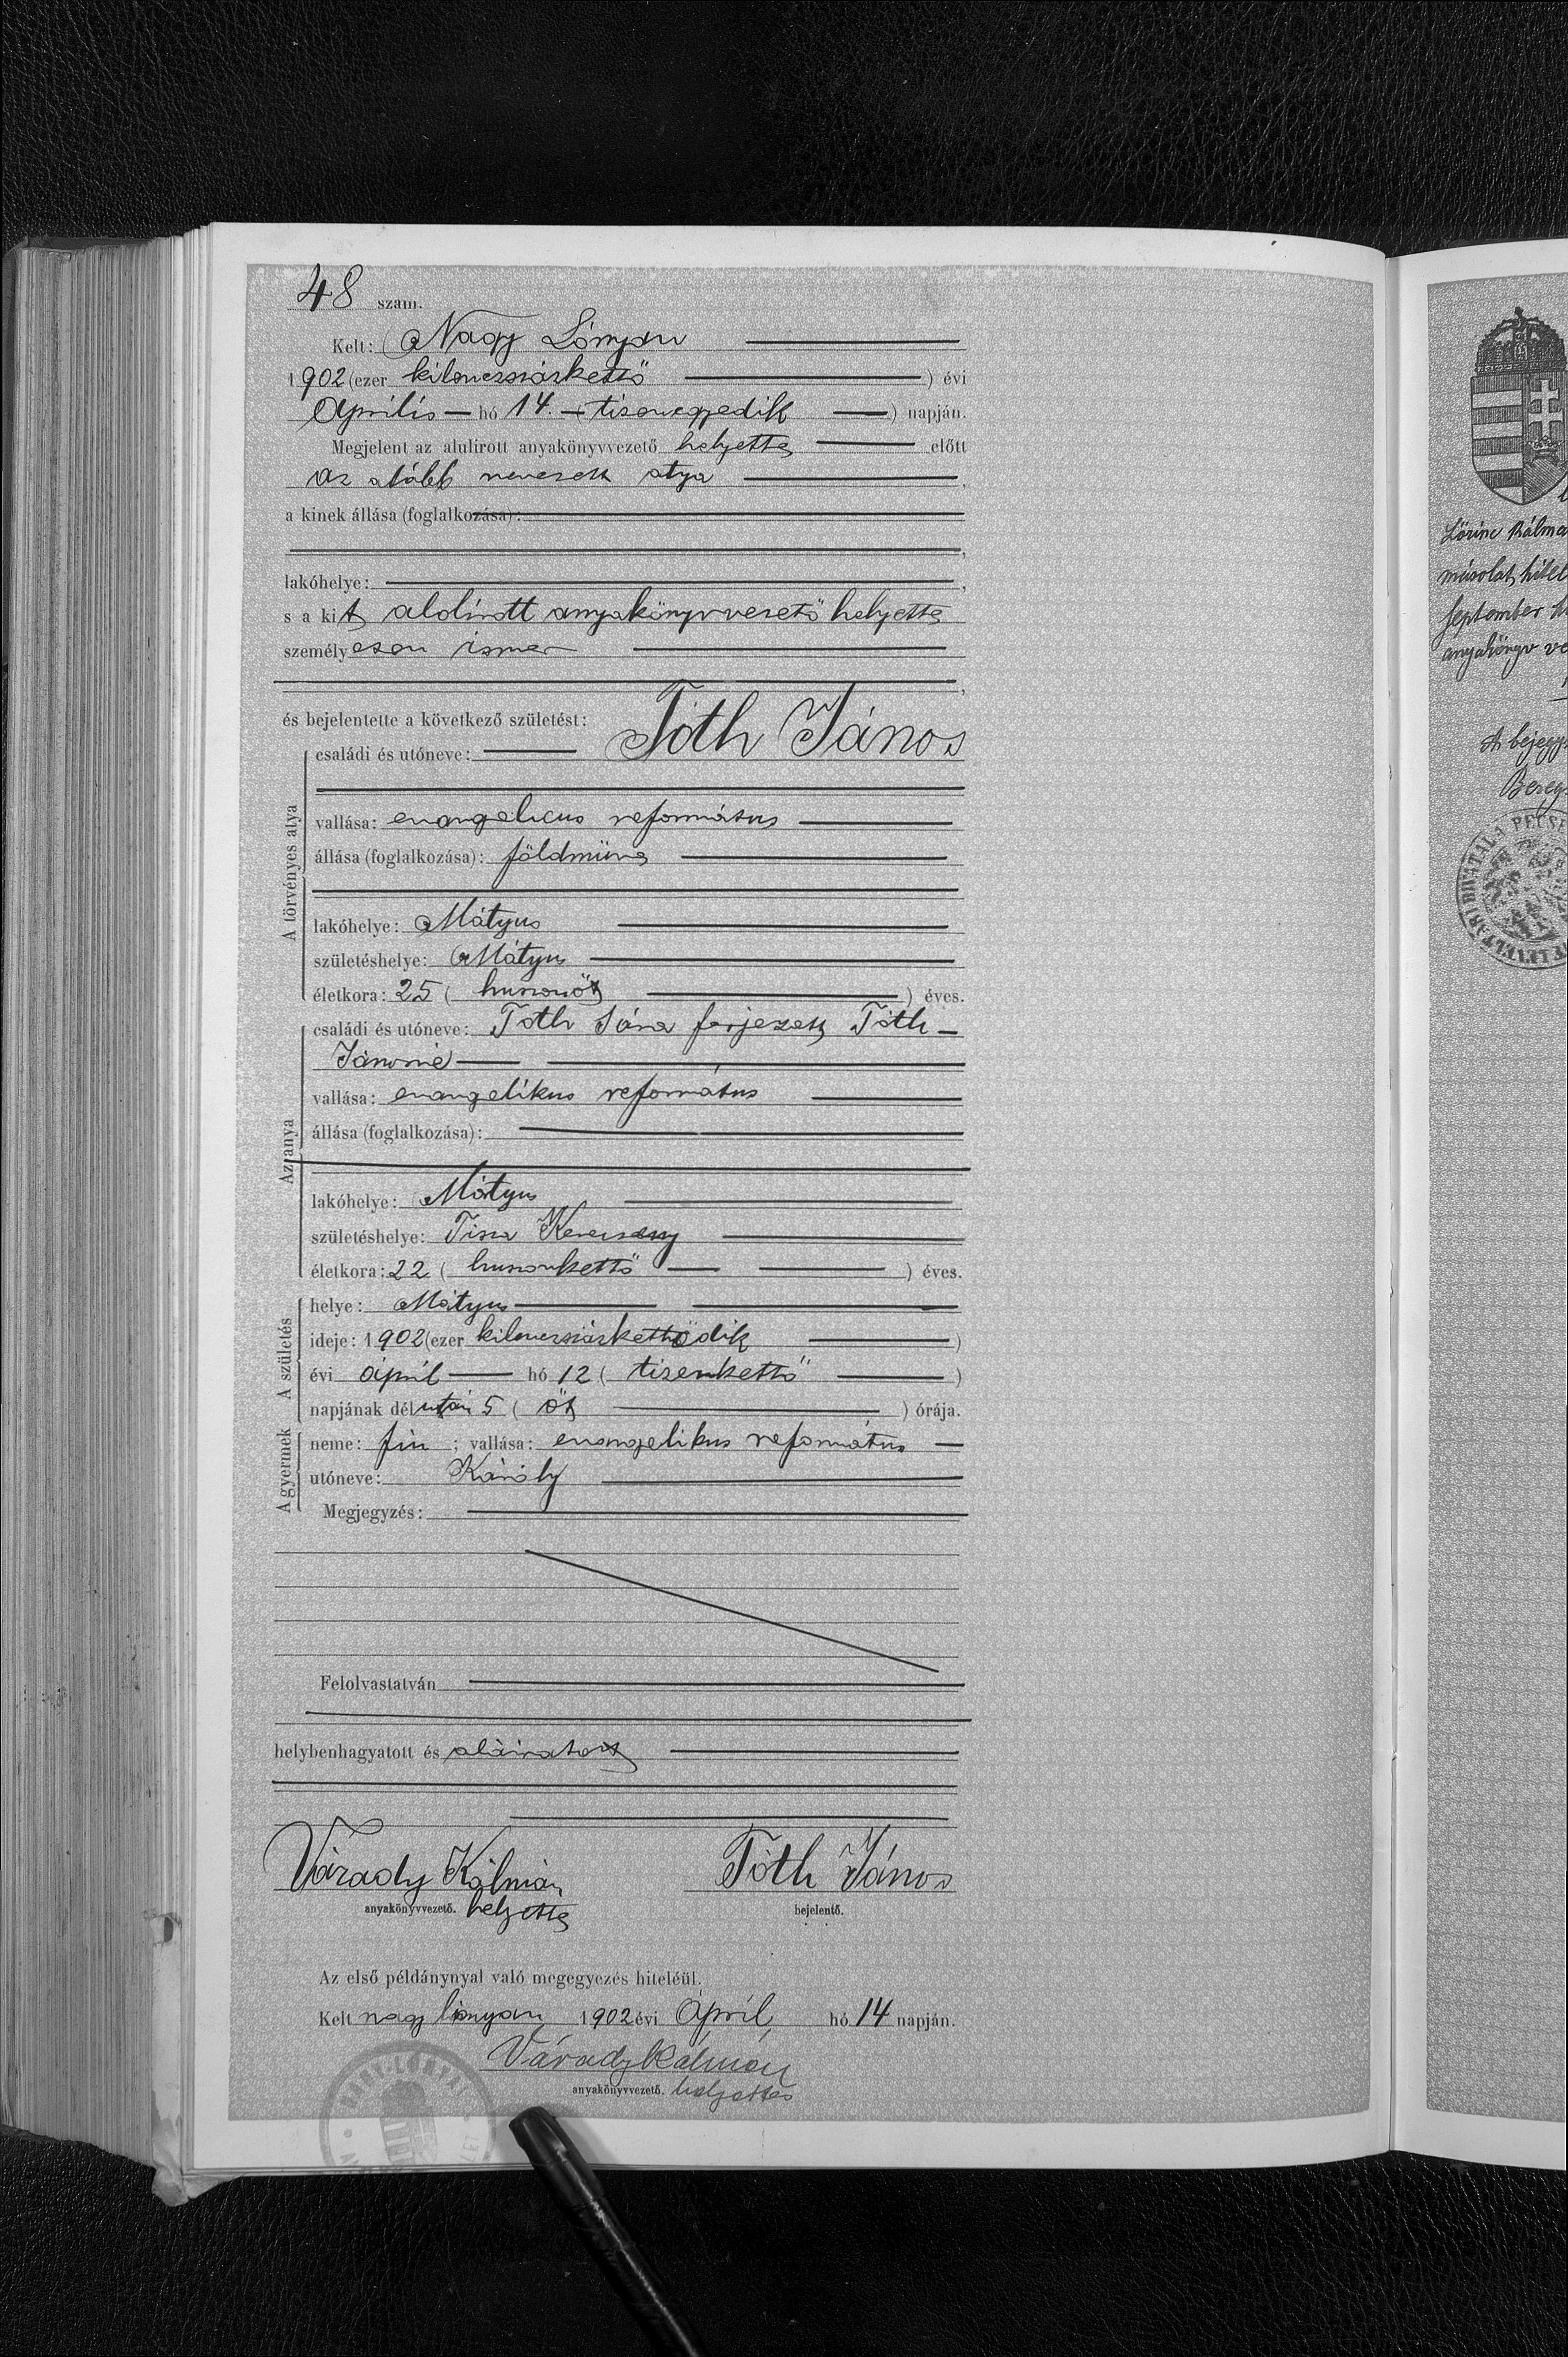 48 szám.
Kelt: Nagy Lónyán
1902 (ezer kilenczszázkettő) évi
Április hó 14. (tizennegyedik) napján.
Megjelent az alulírott anyakönyvvezető helyettes előtt
az alább nevezett atya,
a kinek állása (foglalkozása):
lakóhelye:
s a kit alolírott anyakönyvvezető helyettes
személyesen ismer
és bejelentette a következő születést:
A törvényes atya
családi és utóneve: Tóth János
vallása: evangelicus református
állása (foglalkozása): földműves
lakóhelye: Mátyus
születéshelye: Mátyus
életkora: 25 (huszonöt) éves.
Az anya
családi és utóneve: Tóth Sára férjezett Tóth
Jánosné
vallása: evangelikus református
állása (foglalkozása):
lakóhelye: Mátyus
születéshelye: Tisza Kerecseny
életkora: 22 (huszonkettő) éves.
A születés
helye: Mátyus
ideje: 1902 (ezer kilenczszázkettődik)
évi ápril hó 12 (tizenkettő)
napjának délután 5 (öt) órája.
A gyermek
neme: fiu; vallása: evangelikus református
utóneve: Károly
Megjegyzés:
Felolvastatván
helybenhagyatott és aláiratott
Várady Kálmán
anyakönyvvezető. helyettes
Tóth János
bejelentő.
Az első példánynyal való megegyezés hiteléül.
Kelt nagy lónyán 1902 évi Ápril hó 14 napján.
Várady Kálmán
anyakönyvvezető. helyettes
NAGY-LÓNYAI
Lőrinc Kálmá
másolat hitel
september
anyakönyv ve
A bejegy
Bereg